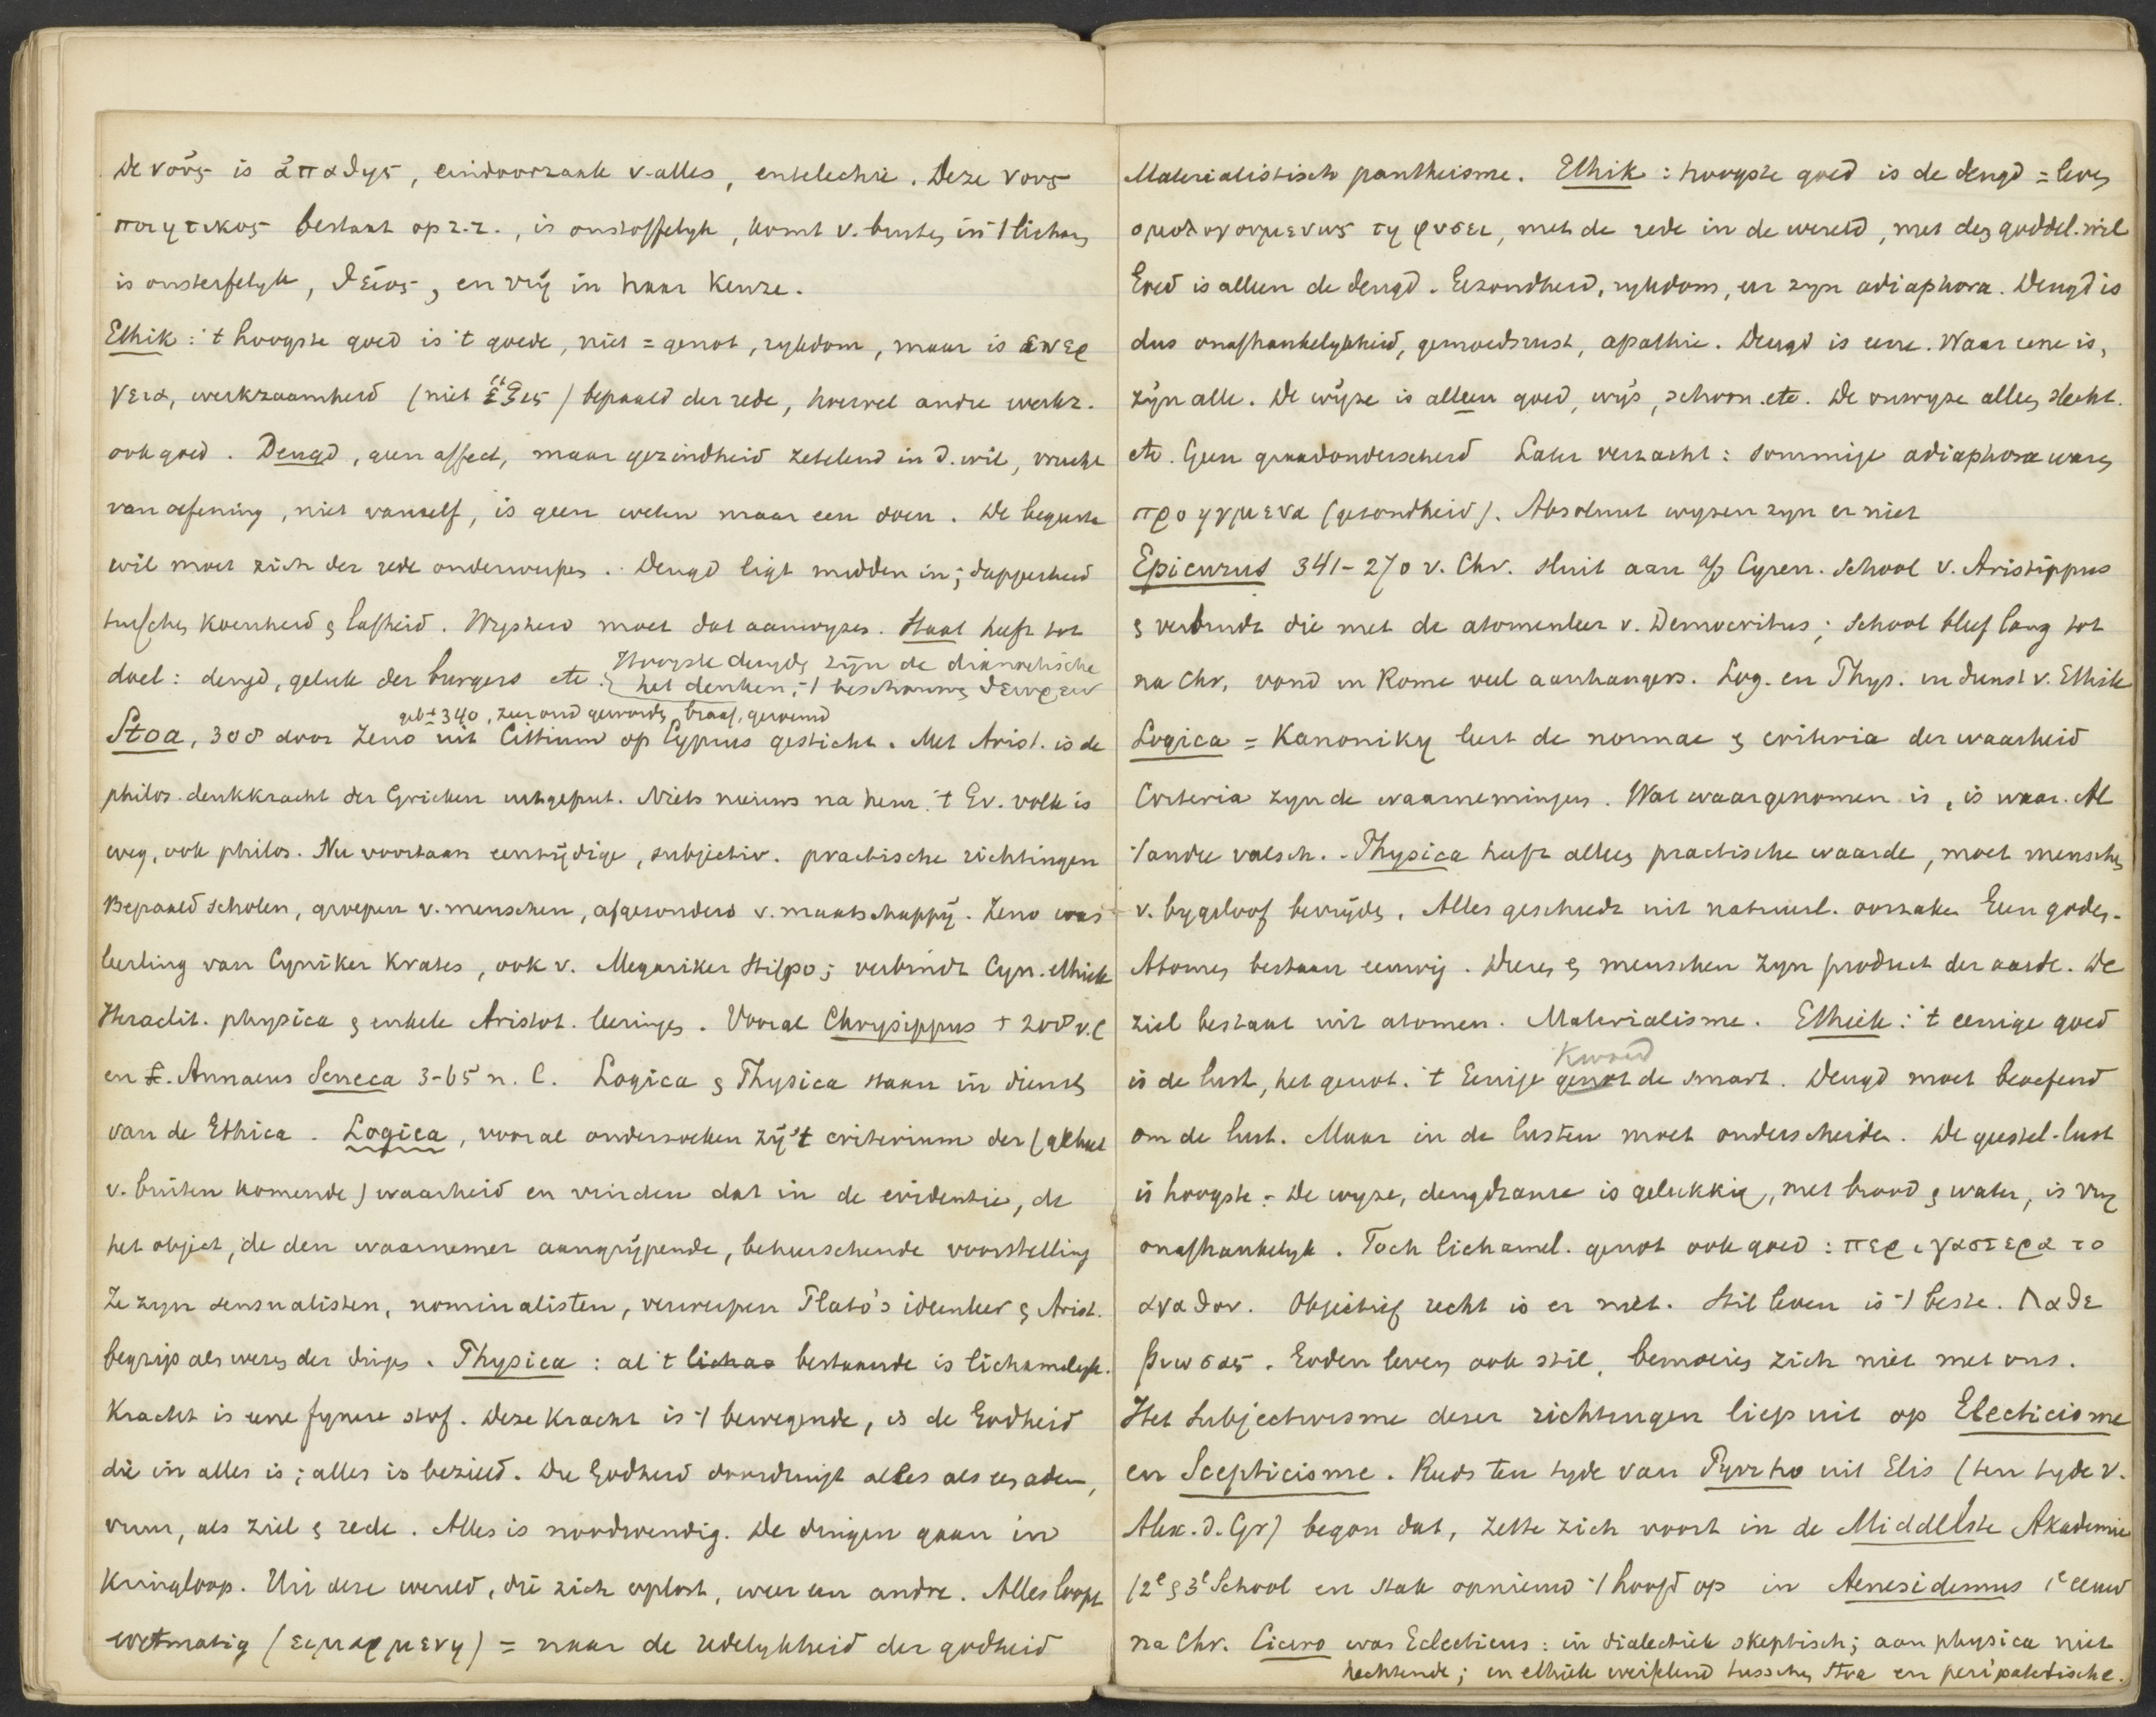 De νοῦς is ἀπαθης, eindoorzaak v. alles, entelechie. Deze νους
ποιητικος bestaat op z.z., is onstoffelyk, komt v. buiten in 't lichaam
is onsterfelyk, θεῖος, en vrij in haar keuze.
Ethik: 't hoogste goed is 't goede, niet = genot, rykdom, maar is ενερ
γεια, werkzaamheid (niet ἕξις) bepaald der rede, hoewel andre werkz.
ook goed. Deugd, geen affect, maar gezindheid zetelend in d. wil, vrucht
van oefening, niet vanself, is geen weten maar een doen. De begeerte
wil moet zich der rede onderwerpen. Deugd ligt midden in; dapperheid
tusschen koenheid & lafheid. Wysheid moet dat aanwyzen. Staat heeft tot
doel: deugd, geluk der burgers etc. Hoogste deugden zijn de dianoetische
het denken, 't beschouwen θεωρειν
geb ± 340, zeer oud geworden, braaf, geroemd
Stoa, 308 door Zeno uit Cittium op Cyprus gesticht. Met Arist. is de
philos. denkkracht der Grieken uitgeput. Niets nieuws na hem. 't Gr. volk is
weg, ook philos. Nu voortaan eenzijdige, subjectiv. practische richtingen
Bepaald scholen, groepen v. menschen, afgesonderd v. maatschappij. Zeno was
leerling van Cyniker Krates, ook v. Megariker Stilpo; verbindt Cyn. ethiek
Heraclit. physica & enkele Aristot. leeringen. Vooral Chrysippus + 208 v. C
en L. Annaeus Seneca 3-65 n. C. Logica & Physica staan in dienst
van de Ethica. Logica, vooral ondersoeken zij 't criterium der (al het
v. buiten komende) waarheid en vinden dat in de evidentie, de
het object, de den waarnemer aangrijpende, beheerschende voorstelling
Ze zyn sensualisten, nominalisten, verwerpen Plato's ideenleer & Arist.
begrip als wezen der dingen. Physica: al 't lichaa bestaande is lichamelyk.
Kracht is eene fynere stof. Deze kracht is 't bewegende, is de Godheid
die in alles is; alles is bezield. Die Godheid doordringt alles als een adem,
vuur, als ziel & rede. Alles is noodwendig. De dingen gaan in
kringloop. Uit deze wereld, die zich oplost, weer een andre. Alles loopt
wetmatig (ειμαρμενη) = naar de redelykheid der godheid
Materialistisch pantheisme. Ethik: hoogste goed is de deugd = leven
ομολογουμενως τη φυσει, met de rede in de wereld, met den goddel. wil
Goed is alleen de deugd. Gezondheid, rykdom, eer zyn adiaphora. Deugd is
dus onafhankelykheid, gemoedsrust, apathie. Deugd is eene. Waar eene is,
zijn alle. De wijze is alleen goed, wijs, schoon etc. De onwyze alleen slecht.
etc. Geen graadonderscheid Later verzacht: sommige adiaphora waren
προηγμενα (gesondheid). Absoluut wyzen zyn er niet
Epicurus 341-270 v. Chr. sluit aan a/d Cyren. School v. Aristippus
& verbindt die met de atomenleer v. Democritus; School bleef lang tot
na Chr, vond in Rome veel aanhangers. Log. en Phys. in dienst v. Ethik
Logica = Kanoniky leert de normae & criteria der waarheid
Criteria zyn de waarnemingen. Wat waargenomen is, is waar. Al
't andre valsch. - Physica heeft alleen practische waarde, moet menschen
v. bygeloof bevrijden. Alles geschiedt uit natuurl. oorzaken Geen goden.
Atomen bestaan eeuwig. Dieren & menschen zyn product der aarde. De
ziel bestaat uit atomen. Materialisme. Ethiek: 't eenige goed
Kwaad
is de lust, het genot. 't Eenige genot de smart. Deugd moet beoefend
om de lust. Maar in de lusten moet onderscheiden. De geestel. lust
is hoogste. De wyze, deugdzame is gelukkig, met brood & water, is vrij
onafhankelyk. Toch lichamel. genot ook goed: περι γαστερα το
αγαθον. Objectief recht is er niet. Stil leven is 't beste. Λαθε
βιωσας. Goden leven ook stil, bemoeien zich niet met ons.
Het subjectivisme dezer richtingen liep uit op Eclecticisme
en Scepticisme. Reeds ten tyde van Pyrrho uit Elis (ten tyde v.
Alex. d. Gr) begon dat, zette zich voort in de Middelste Akademie
(2e & 3e School en stak opnieuw 't hoofd op in Aenesidemus 1e eeuw
na Chr. Cicero was Eclecticus: in dialectiek skeptisch; aan physica niet
hechtende; in ethiek weifelend tusschen Stoa en peripatetische.